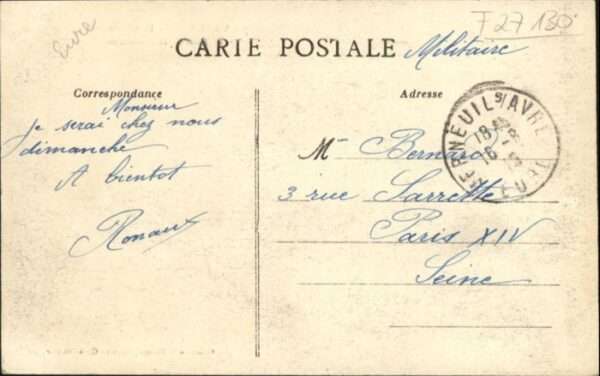 Eure
F27130
CARTE POSTALE Militaire
Correspondance
Adresse
Monsieur
Je serai chez nous
dimanche
A bientot
Ronaux
VERNEUIL S/ AVRE
18
16
EURE
Mr Bernard
3 rue Sarrette
Paris XIV
Seine